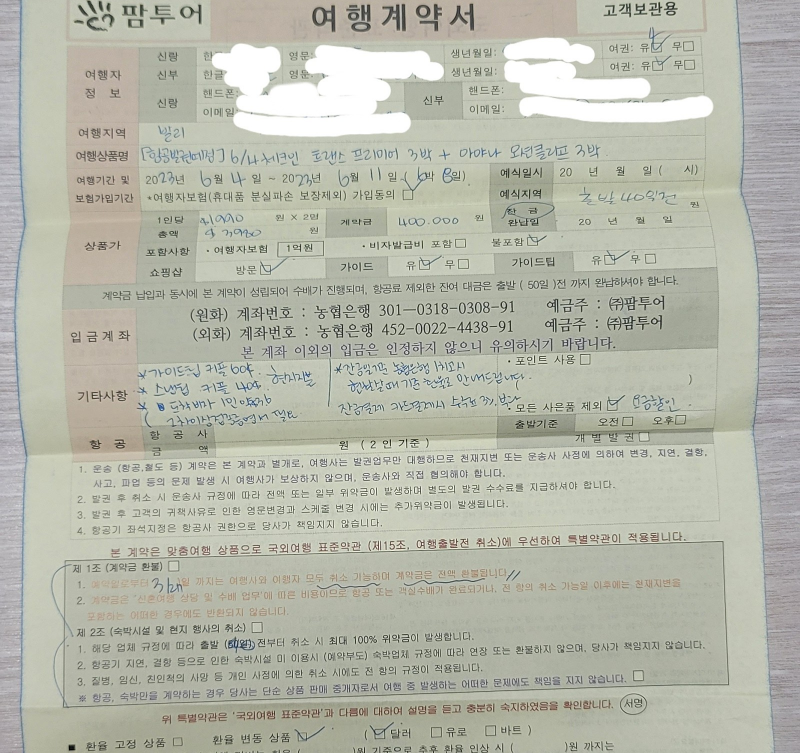 팜투어 여행계약서 고객보관용
여행자 정보
신랑 한글 영문: 생년월일: 여권: 유☑ 무□
신부 한글 영문: 생년월일: 여권: 유☑ 무□
신랑 핸드폰: 신부 핸드폰:
이메일: 이메일:
여행지역 발리
여행상품명 [항공발권예정] 6/4 체크인 프리미어 3박 + 아야나 3박
여행기간 및 2023년 6월 4일 ~ 2023년 6월 11일 (6박 8일) 예식일시 20 년 월 일 ( 시)
보험가입기간 *여행자보험(휴대품 분실파손 보장제외) 가입동의 예식지역
상품가 1인당 $1990 원 X 2명 계약금 400.000 원 잔금 완납일 출발 40일전 원
총액 $3980 원 20 년 월 일
포함사항 · 여행자보험 1억원 · 비자발급비 포함□ 불포함☑
쇼핑샵 방문☑ 가이드 유☑ 무□ 가이드팁 유☑ 무□
계약금 납입과 동시에 본 계약이 성립되어 수배가 진행되며, 항공료 제외한 잔여 대금은 출발 ( 50일 )전 까지 완납하셔야 합니다.
입금계좌 (원화) 계좌번호 : 농협은행 301-0318-0308-91 예금주 : ㈜팜투어
(외화) 계좌번호 : 농협은행 452-0022-4438-91 예금주 : ㈜팜투어
본 계좌 이외의 입금은 인정하지 않으니 유의하시기 바랍니다.
기타사항
*가이드팁 커플 60$ 현지지불
*스냅팁 커플 40$
*도착비자 1인
*잔금일기준 농협은행 1회고시
현찰살때 기준 환율로 안내드립니다.
잔금결제 카드결제시 수수료 3%
· 포인트 사용□ )
모든 사은품 제외☑ 요금할인
항 공 항 공 사 출발기준 오전□ 오후□
금 액 원 (2인 기준) 개 별 발 권 □
1. 운송 (항공,철도 등) 계약은 본 계약과 별개로, 여행사는 발권업무만 대행하므로 천재지변 또는 운송사 사정에 의하여 변경, 지연, 결항,
사고, 파업 등의 문제 발생 시 여행사가 보상하지 않으며, 운송사와 직접 협의해야 합니다.
2. 발권 후 취소 시 운송사 규정에 따라 전액 또는 일부 위약금이 발생하며 별도의 발권 수수료를 지급하셔야 합니다.
3. 발권 후 고객의 귀책사유로 인한 영문변경과 스케줄 변경 시에는 추가위약금이 발생합니다.
4. 항공기 좌석지정은 항공사 권한으로 당사가 책임지지 않습니다.
본 계약은 맞춤여행 상품으로 국외여행 표준약관 (제15조, 여행출발전 취소)에 우선하여 특별약관이 적용됩니다.
제 1조 (계약금 환불) □
1. 예약일로부터 일 까지는 여행사와 여행자 모두 취소 가능하며 계약금은 전액 환불됩니다.
2. 계약금은 '신혼여행 상담 및 수배 업무'에 따른 비용이므로 항공 또는 객실수배가 완료되거나, 전 항의 취소 가능일 이후에는 천재지변을
포함하는 어떠한 경우에도 반환되지 않습니다.
제 2조 (숙박시설 및 현지 행사의 취소) □
1. 해당 업체 규정에 따라 출발 전부터 취소 시 최대 100% 위약금이 발생합니다.
2. 항공기 지연, 결항 등으로 인한 숙박시설 미 이용시 (예약부도) 숙박업체 규정에 따라 연장 또는 환불하지 않으며, 당사가 책임지지 않습니다.
3. 질병, 임신, 친인척의 사망 등 개인 사정에 의한 취소 시에도 전 항의 규정이 적용됩니다.
※ 항공, 숙박만을 계약하는 경우 당사는 단순 상품 판매 중개자로서 여행 중 발생하는 어떠한 문제에도 책임을 지지 않습니다. □
위 특별약관은 '국외여행 표준약관'과 다름에 대하여 설명을 듣고 충분히 숙지하였음을 확인합니다. 서명
■ 환율 고정 상품 □ 환율 변동 상품 ☑ (☑달러 □유로 □바트 )
)원 기준으로 추후 환율 인상 시 ( )원 까지는